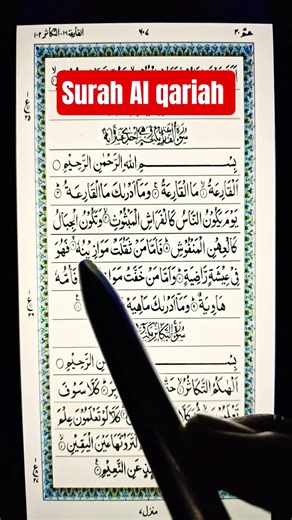 عمّ ٣٠
القارعة ١٠١ التكاثر ١٠٢
Surah Al qariah
بِسْمِ اللهِ الرَّحْمٰنِ الرَّحِيْمِ
اَلْقَارِعَةُ ۙ مَا الْقَارِعَةُ ۚ وَمَاۤ اَدْرٰىكَ مَا الْقَارِعَةُ ؕ
يَوْمَ يَكُوْنُ النَّاسُ كَالْفَرَاشِ الْمَبْثُوْثِ ۙ وَتَكُوْنُ الْجِبَالُ
كَالْعِهْنِ الْمَنْفُوْشِ ؕ فَاَمَّا مَنْ ثَقُلَتْ مَوَازِيْنُهٗ ۙ فَهُوَ
فِيْ عِيْشَةٍ رَّاضِيَةٍ ؕ وَاَمَّا مَنْ خَفَّتْ فَاُمُّهٗ
هَاوِيَةٌ ؕ وَمَاۤ اَدْرٰىكَ مَاهِيَهْ
بِسْمِ الرَّحْمٰنِ الرَّحِيْمِ
اَلْهٰىكُمُ التَّكَاثُرُ ۙ كَلَّا سَوْفَ
تَعْلَمُوْنَ كَلَّا لَوْ تَعْلَمُوْنَ عِلْمَ
لَتَرَوُنَّهَا عَيْنَ الْيَقِيْنِ
عَنِ النَّعِيْمِ
منزل ٧